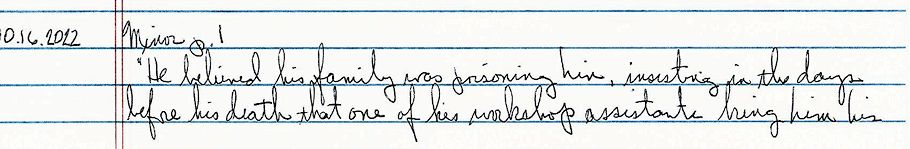 10.16.2022 Minor p. 1
"He believed his family was poisoning him, insisting in the days
before his death that one of his workshop assistants bring him his